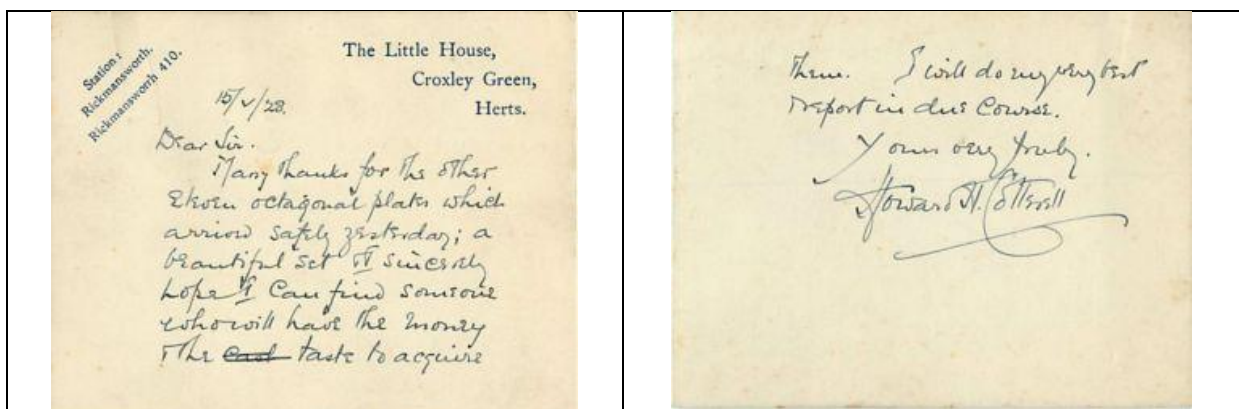 Station:
Rickmansworth.
Rickmansworth 410.
The Little House,
Croxley Green,
Herts.
15/V/28.
Dear Sir.
Many thanks for the other
eleven octagonal plates which
arrived safely yesterday; a
beautiful set & sincerely
hope I can find someone
who will have the money
& the taste to acquire
them. I will do my very best
& report in due course.
Yours very truly.
Howard H. Cotterell